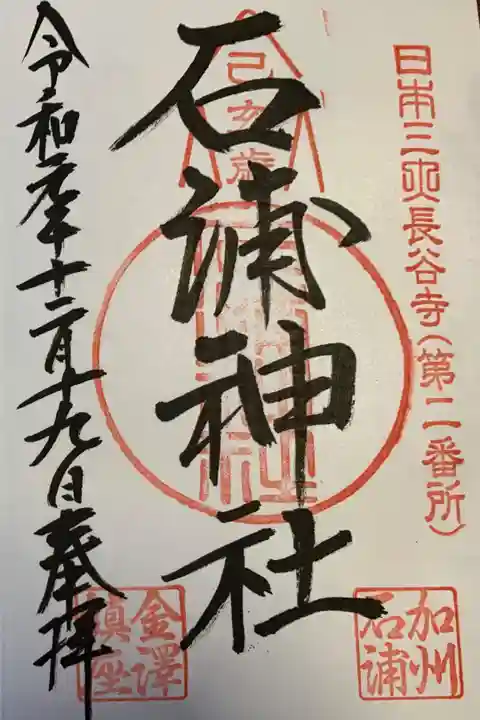 日本三大長谷寺(第二番所)
加州
石浦
己亥歳
石浦神社
金澤
鎮座
令和元年十二月十九日奉拝